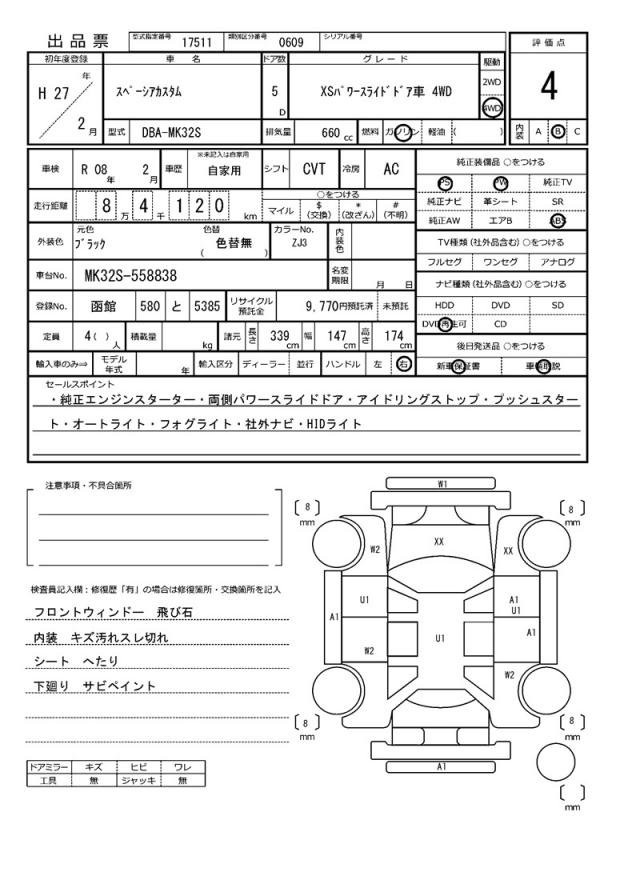 出品票 型式指定番号 17511 類別区分番号 0609 シリアル番号
評価点
4
内装 A B C
初年度登録 車名 ドア数 グレード 駆動
H 27 年 2 月 スペーシアカスタム 5 D XSパワースライドドア車 4WD 2WD
4WD
型式 DBA-MK32S 排気量 660 cc 燃料 ガソリン 軽油 ( )
車検 R 08 年 2 月 車歴 ※未記入は自家用 自家用 シフト CVT 冷房 AC
走行距離 8 万 4 千 1 2 0 km ○をつける
マイル $ (交換) * (改ざん) # (不明)
外装色 元色 ブラック 色替 ( 色替無 ) カラーNo. ZJ3 内装色
車台No. MK32S-558838 名変期限 月 日
登録No. 函館 580 と 5385 リサイクル預託金 9,770円預託済 未預託
定員 4( ) 人 積載量 kg 諸元 長さ 339 cm 幅 147 cm 高さ 174 cm
輸入車のみ⇒ モデル年式 年 輸入区分 ディーラー 並行 ハンドル 左 右
純正装備品 ○をつける
PS PW 純正TV
純正ナビ 革シート SR
純正AW エアB ABS
TV種類 (社外品含む) ○をつける
フルセグ ワンセグ アナログ
ナビ種類 (社外品含む) ○をつける
HDD DVD SD
DVD再生可 CD
後日発送品 ○をつける
新車保証書 車輌取説
セールスポイント
・純正エンジンスターター・両側パワースライドドア・アイドリングストップ・プッシュスター
ト・オートライト・フォグライト・社外ナビ・HIDライト
注意事項・不具合箇所
検査員記入欄：修復歴「有」の場合は修復箇所・交換箇所を記入
フロントウィンドー 飛び石
内装 キズ汚れスレ切れ
シート へたり
下廻り サビペイント
ドアミラー キズ ヒビ ワレ
工具 無 ジャッキ 無
W1
8 mm 8 mm
W2 XX XX
U1 A1 U1
A1 U1 A1
W2 W2
8 mm 8 mm
A1
mm